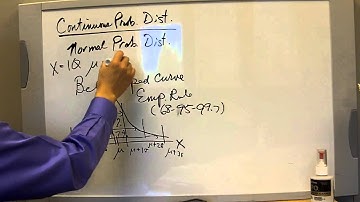 Continuous Prob. Dist.
Normal Prob. Dist.
X = IQ μ
Curve
Emp Rule
(68-95-99.7)
X
μ μ+1σ μ+2σ μ+3σ